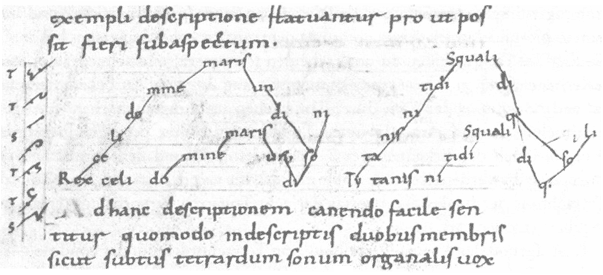 exempli descriptione statuantur pro ut pos
sit fieri subaspectum.
maris Squali
T mine un tidi di
T do di ni ni q
S li maris nis Squali i li
T ce mine so ta tidi di so
T Rex celi do di Ty tanis ni q.
S dhanc descriptionem canendo facile sen
titur quomodo indescriptis duobus membris
sicut subtus tetrardum sonum organalis uox